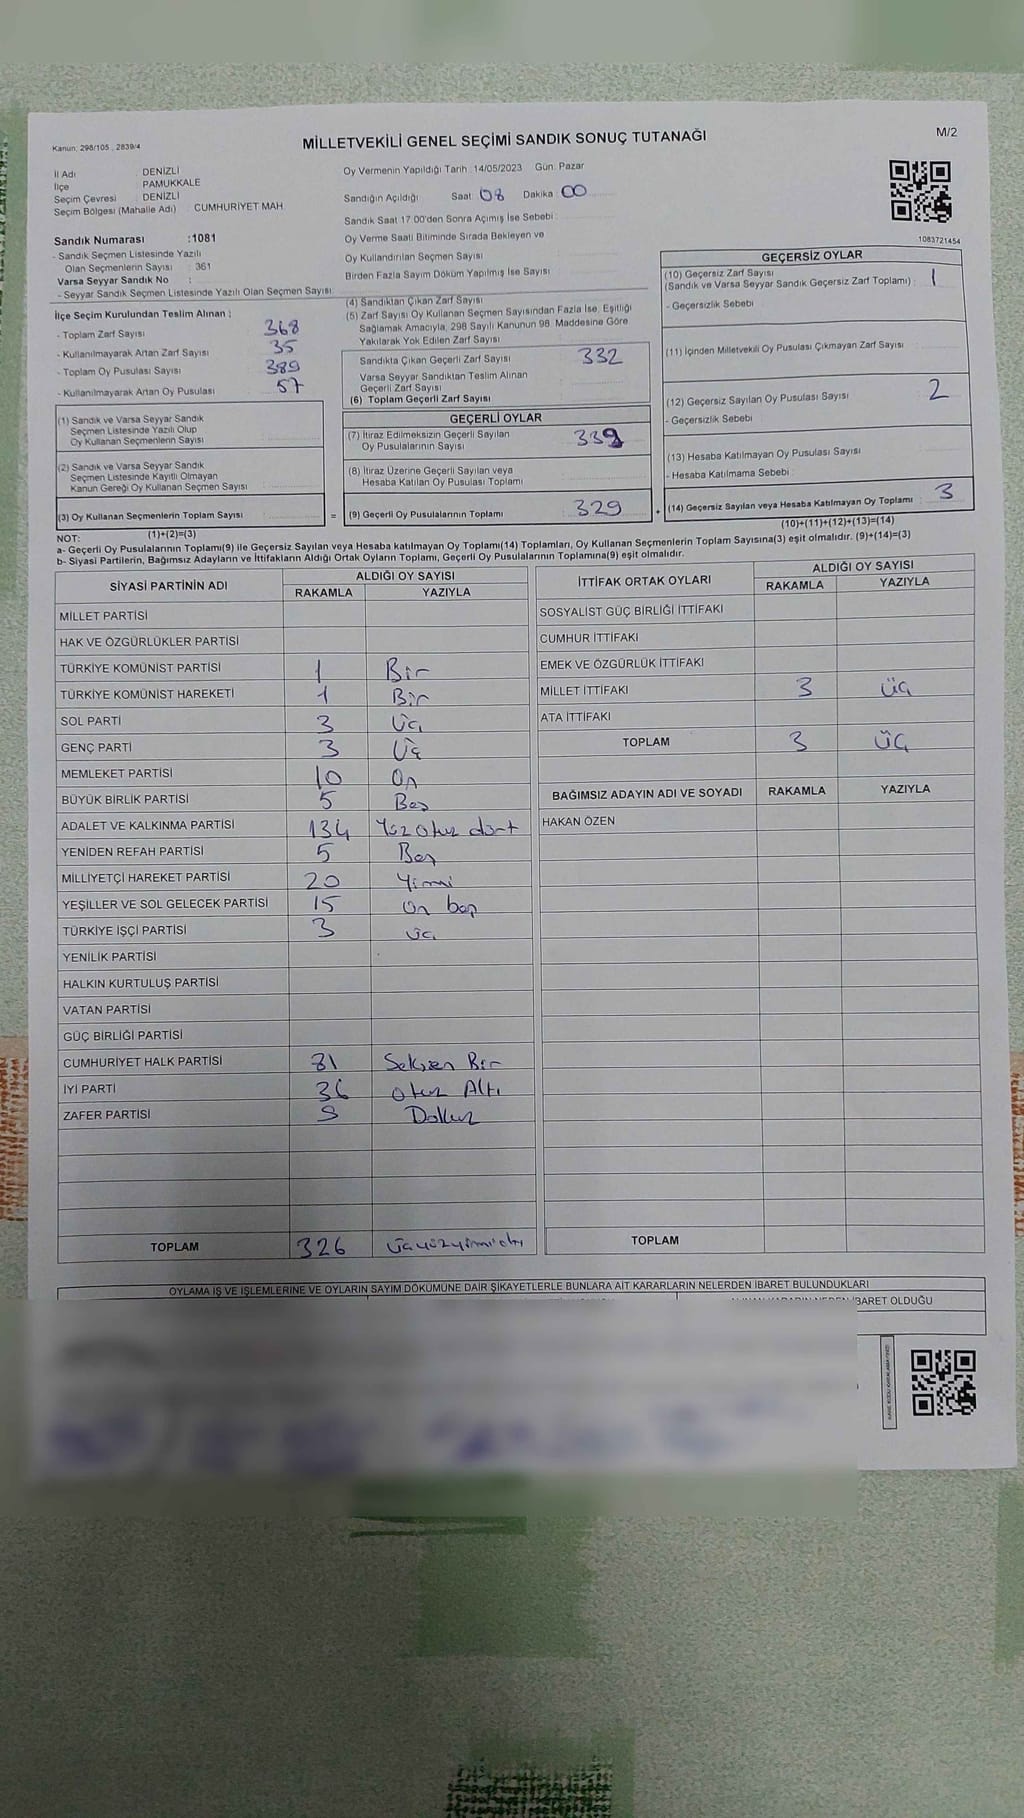 Kanun: 298/105 , 2839/4
MİLLETVEKİLİ GENEL SEÇİMİ SANDIK SONUÇ TUTANAĞI
M/2
İl Adı DENİZLİ
İlçe PAMUKKALE
Seçim Çevresi : DENİZLİ
Seçim Bölgesi (Mahalle Adı) : CUMHURİYET MAH.
Oy Vermenin Yapıldığı Tarih : 14/05/2023 Gün: Pazar
Sandığın Açıldığı Saat: 08 Dakika: 00
Sandık Saat 17:00'den Sonra Açımış İse Sebebi :
Oy Verme Saati Bitiminde Sırada Bekleyen ve
Oy Kullandırılan Seçmen Sayısı
Birden Fazla Sayım Döküm Yapılmış İse Sayısı
Sandık Numarası :1081
- Sandık Seçmen Listesinde Yazılı
Olan Seçmenlerin Sayısı : 361
Varsa Seyyar Sandık No :
- Seyyar Sandık Seçmen Listesinde Yazılı Olan Seçmen Sayısı:
İlçe Seçim Kurulundan Teslim Alınan ;
- Toplam Zarf Sayısı 368
- Kullanılmayarak Artan Zarf Sayısı 35
- Toplam Oy Pusulası Sayısı 389
- Kullanılmayarak Artan Oy Pusulası 57
(1) Sandık ve Varsa Seyyar Sandık
Seçmen Listesinde Yazılı Olup
Oy Kullanan Seçmenlerin Sayısı
(2) Sandık ve Varsa Seyyar Sandık
Seçmen Listesinde Kayıtlı Olmayan
Kanun Gereği Oy Kullanan Seçmen Sayısı
(3) Oy Kullanan Seçmenlerin Toplam Sayısı
(1)+(2)=(3)
=
(4) Sandıktan Çıkan Zarf Sayısı
(5) Zarf Sayısı Oy Kullanan Seçmen Sayısından Fazla İse, Eşitliği
Sağlamak Amacıyla, 298 Sayılı Kanunun 98. Maddesine Göre
Yakılarak Yok Edilen Zarf Sayısı
Sandıkta Çıkan Geçerli Zarf Sayısı : 332
Varsa Seyyar Sandıktan Teslim Alınan
Geçerli Zarf Sayısı
(6) Toplam Geçerli Zarf Sayısı
GEÇERLİ OYLAR
(7) İtiraz Edilmeksizin Geçerli Sayılan
Oy Pusulalarının Sayısı
(8) İtiraz Üzerine Geçerli Sayılan veya
Hesaba Katılan Oy Pusulası Toplamı
(9) Geçerli Oy Pusulalarının Toplamı : 329
+
1083721454
GEÇERSİZ OYLAR
(10) Geçersiz Zarf Sayısı
(Sandık ve Varsa Seyyar Sandık Geçersiz Zarf Toplamı) : 1
- Geçersizlik Sebebi :
(11) İçinden Milletvekili Oy Pusulası Çıkmayan Zarf Sayısı
(12) Geçersiz Sayılan Oy Pusulası Sayısı : 2
- Geçersizlik Sebebi
(13) Hesaba Katılmayan Oy Pusulası Sayısı
- Hesaba Katılmama Sebebi :
(14) Geçersiz Sayılan veya Hesaba Katılmayan Oy Toplamı : 3
(10)+(11)+(12)+(13)=(14)
NOT:
a- Geçerli Oy Pusulalarının Toplamı(9) ile Geçersiz Sayılan veya Hesaba katılmayan Oy Toplamı(14) Toplamları, Oy Kullanan Seçmenlerin Toplam Sayısına(3) eşit olmalıdır. (9)+(14)=(3)
b- Siyasi Partilerin, Bağımsız Adayların ve İttifakların Aldığı Ortak Oyların Toplamı, Geçerli Oy Pusulalarının Toplamına(9) eşit olmalıdır.
SİYASİ PARTİNİN ADI ALDIĞI OY SAYISI
RAKAMLA YAZIYLA
MİLLET PARTİSİ
HAK VE ÖZGÜRLÜKLER PARTİSİ
TÜRKİYE KOMÜNİST PARTİSİ 1 Bir
TÜRKİYE KOMÜNİST HAREKETİ 1 Bir
SOL PARTİ 3 Üç
GENÇ PARTİ 3 Üç
MEMLEKET PARTİSİ 10 On
BÜYÜK BİRLİK PARTİSİ 5 Beş
ADALET VE KALKINMA PARTİSİ 134 Yüz otuz dört
YENİDEN REFAH PARTİSİ 5 Beş
MİLLİYETÇİ HAREKET PARTİSİ 20 Yirmi
YEŞİLLER VE SOL GELECEK PARTİSİ 15 On beş
TÜRKİYE İŞÇİ PARTİSİ 3 Üç
YENİLİK PARTİSİ
HALKIN KURTULUŞ PARTİSİ
VATAN PARTİSİ
GÜÇ BİRLİĞİ PARTİSİ
CUMHURİYET HALK PARTİSİ 81 Seksen Bir
İYİ PARTİ 36 Otuz Altı
ZAFER PARTİSİ 9 Dokuz
TOPLAM 326 Üçyüzyirmialtı
İTTİFAK ORTAK OYLARI ALDIĞI OY SAYISI
RAKAMLA YAZIYLA
SOSYALİST GÜÇ BİRLİĞİ İTTİFAKI
CUMHUR İTTİFAKI
EMEK VE ÖZGÜRLÜK İTTİFAKI
MİLLET İTTİFAKI 3 üç
ATA İTTİFAKI
TOPLAM 3 üç
BAĞIMSIZ ADAYIN ADI VE SOYADI RAKAMLA YAZIYLA
HAKAN ÖZEN
TOPLAM
OYLAMA İŞ VE İŞLEMLERİNE VE OYLARIN SAYIM DÖKÜMÜNE DAİR ŞİKAYETLERLE BUNLARA AİT KARARLARIN NELERDEN İBARET BULUNDUKLARI
İBARET OLDUĞU